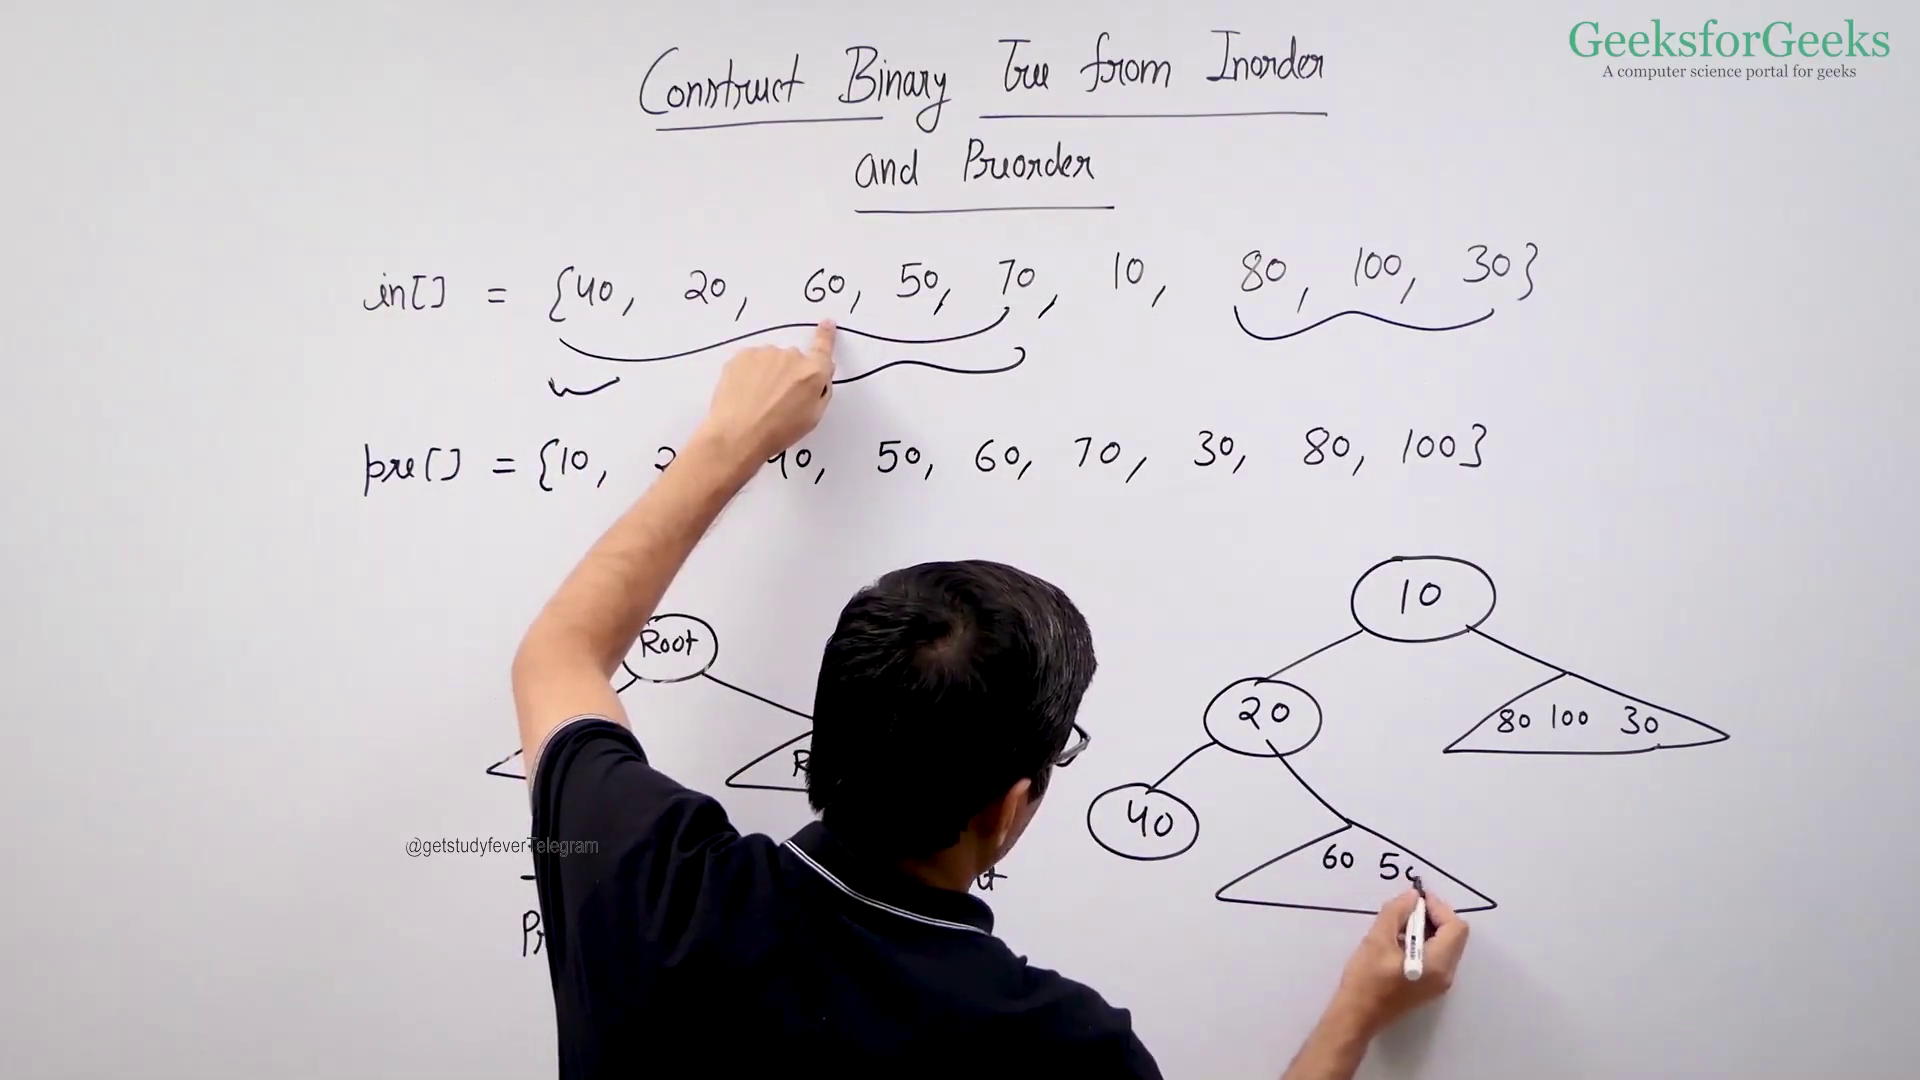 GeeksforGeeks
A computer science portal for geeks
Construct Binary Tree from Inorder
and Preorder
in[] = {40, 20, 60, 50, 70, 10, 80, 100, 30}
pre[] = {10, 40, 50, 60, 70, 30, 80, 100}
10
Root
20
80 100 30
40
60 50
@getstudyfeverTelegram